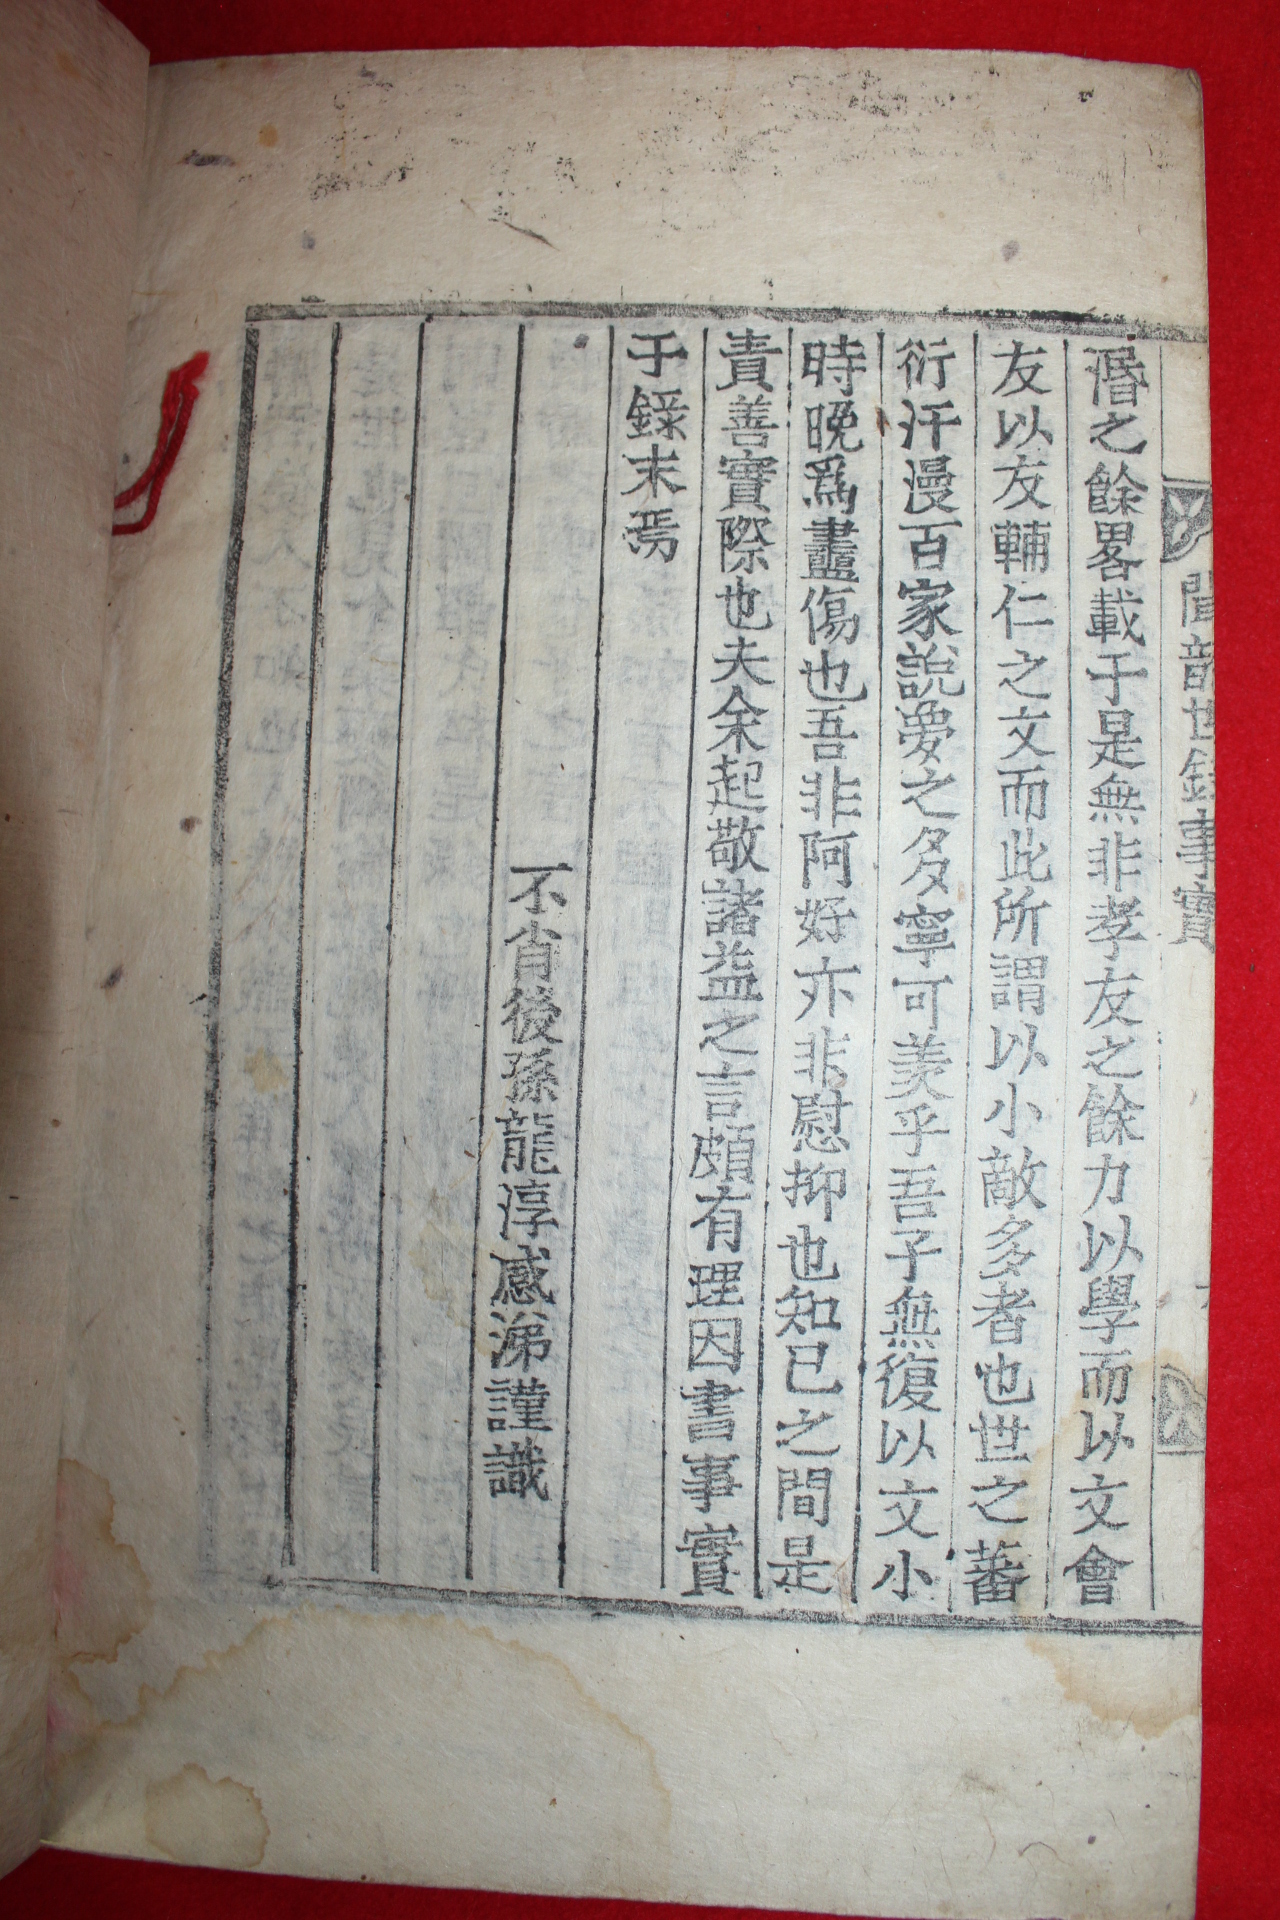 聞韶世錄事實
湣之餘畧載于是無非孝友之餘力以學而以文會
友以友輔仁之文而此所謂以小敵多者也世之蕃
衍汗漫百家說夢之多寧可羡乎吾子無復以文小
時晚爲衋傷也吾非阿好亦非慰抑也知已之間是
責善實際也夫余起敬諸益之言頗有理因書事實
于錄末焉
不肖後孫龍淳感涕謹識